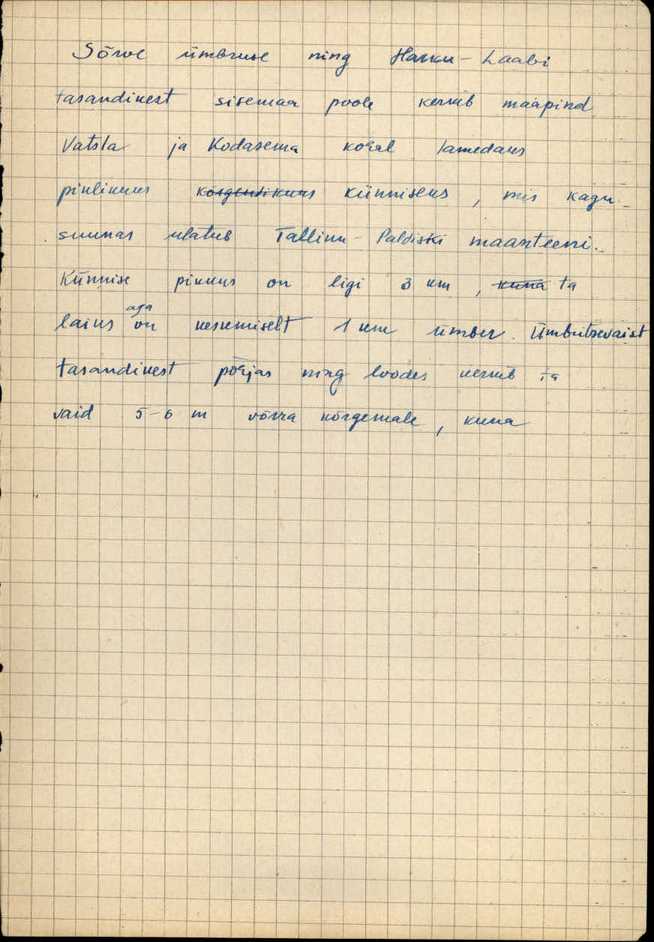 Sõrve ümbruse ning Harku-Laabi
tasandikest sisemaa poole kerkib maapind
Vatsla ja Kodasema kohal lamedaks
piklikuks kõrgendikuks künniseks, mis kagu-
suunas ulatub Tallinn-Paldiski maanteeni.
Künnise pikkus on ligi 3 km, kuna ta
laius aga on keskmiselt 1 km ümber. Ümbritsevaist
tasandikest põhjas ning loodes kerkib ta
vaid 5-6 m võrra kõrgemale, kuna